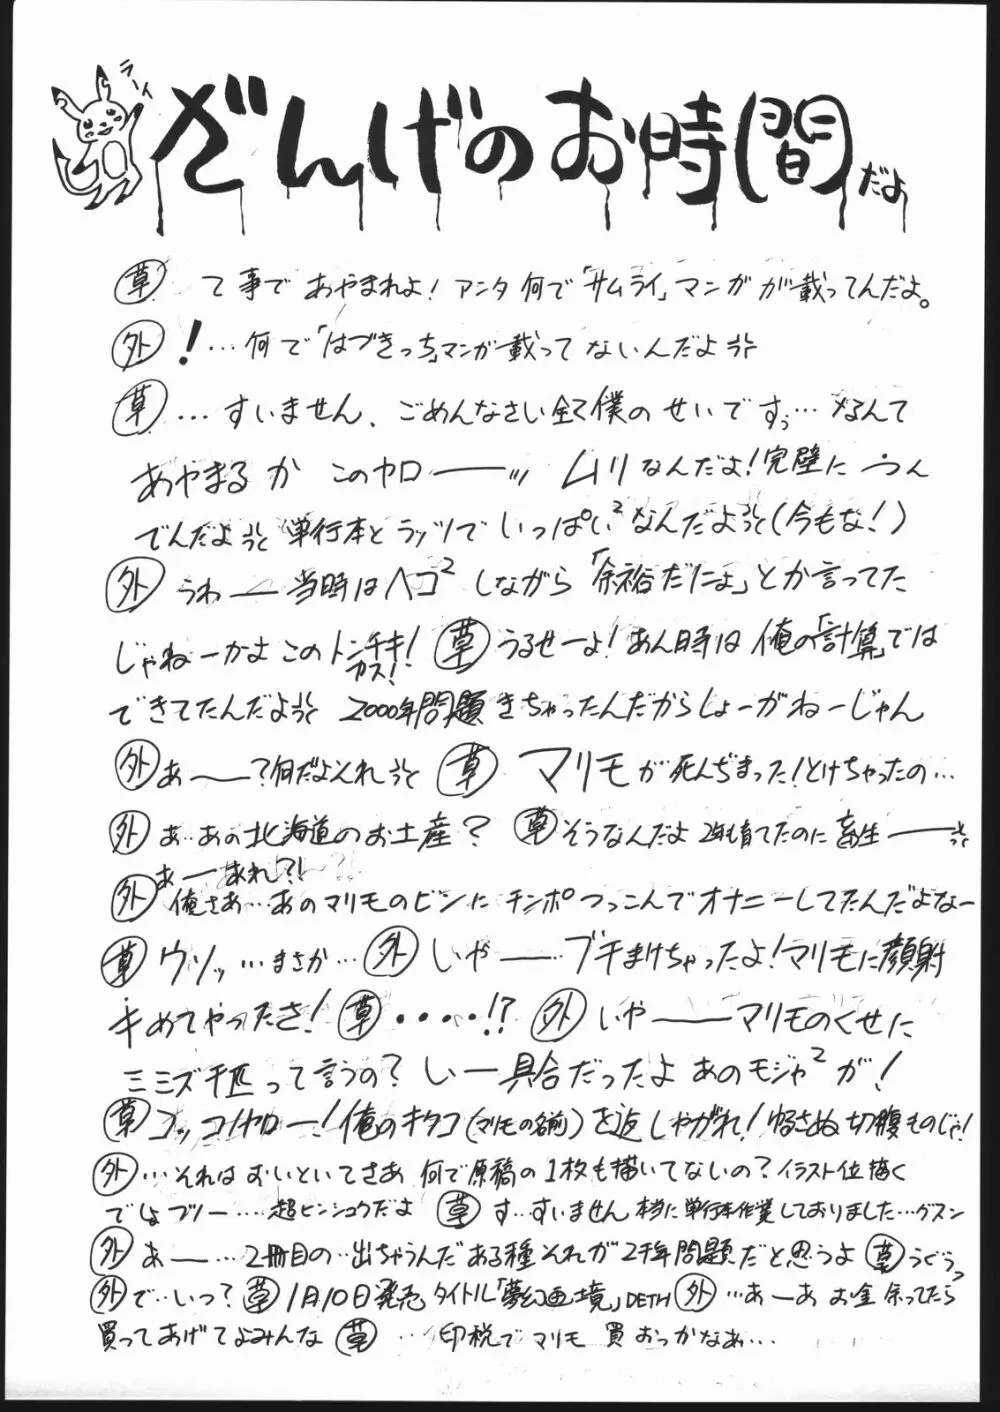 ラーイ
ざんげのお時間だよ
草 て事であやまれよ!アンタ何で「サムライ」マンガが載ってんだよ。
外 !…何で「はづきっち」マンガ載ってないんだよ
草 …すいません、ごめんなさい全て僕のせいですぅ…なんて
あやまるか このヤローーッ ムリなんだよ!完璧に
でんだよ 単行本とラッツでいっぱい²なんだよ(今もな!)
外 うわー当時はヘコ²しながら「余裕だによ」とか言ってた
じゃねーかよこのトンチキ!カス! 草 うるせーよ!あん時は俺の「計算」では
できてたんだよ 2000年問題きちゃったんだからしょーがねーじゃん
外 あー?何だよそれ 草 マリモが死んぢまった!とけちゃったの…
外 あ…あの北海道のお土産? 草 そうなんだよ 2年も育てたのに畜生ー
あーあれ?!
外 俺さあ…あのマリモのビンにチンポつっこんでオナニーしてたんだよなー
草 ウソッ…まさか… 外 いやーブチまけちゃったよ!マリモに顔射
キめてやったさ! 草 ・・・・!? 外 いやーマリモのくせに
ミミズ千匹って言うの?いー具合だったよあのモジャ²が!
草 コッコノヤロー!俺のキタコ(マリモの名前)を返しやがれ!ゆるさぬ切腹ものじゃ!
外 …それはおいといてさあ 何で原稿の1枚も描いてないの?イラスト位描く
でしょフツー…超ヒンシュクだよ 草 す…すいません 本当に単行本作業しておりました…グスン
外 あー…2冊目の…出ちゃうんだある種それが2千年問題だと思うよ 草 うぐぅっ
外 で…いつ? 草 1月10日発売 タイトル「夢幻画境」DETH 外 …あーあ お金余ってたら
買ってあげてよみんな 草 …印税でマリモ買おっかなあ…